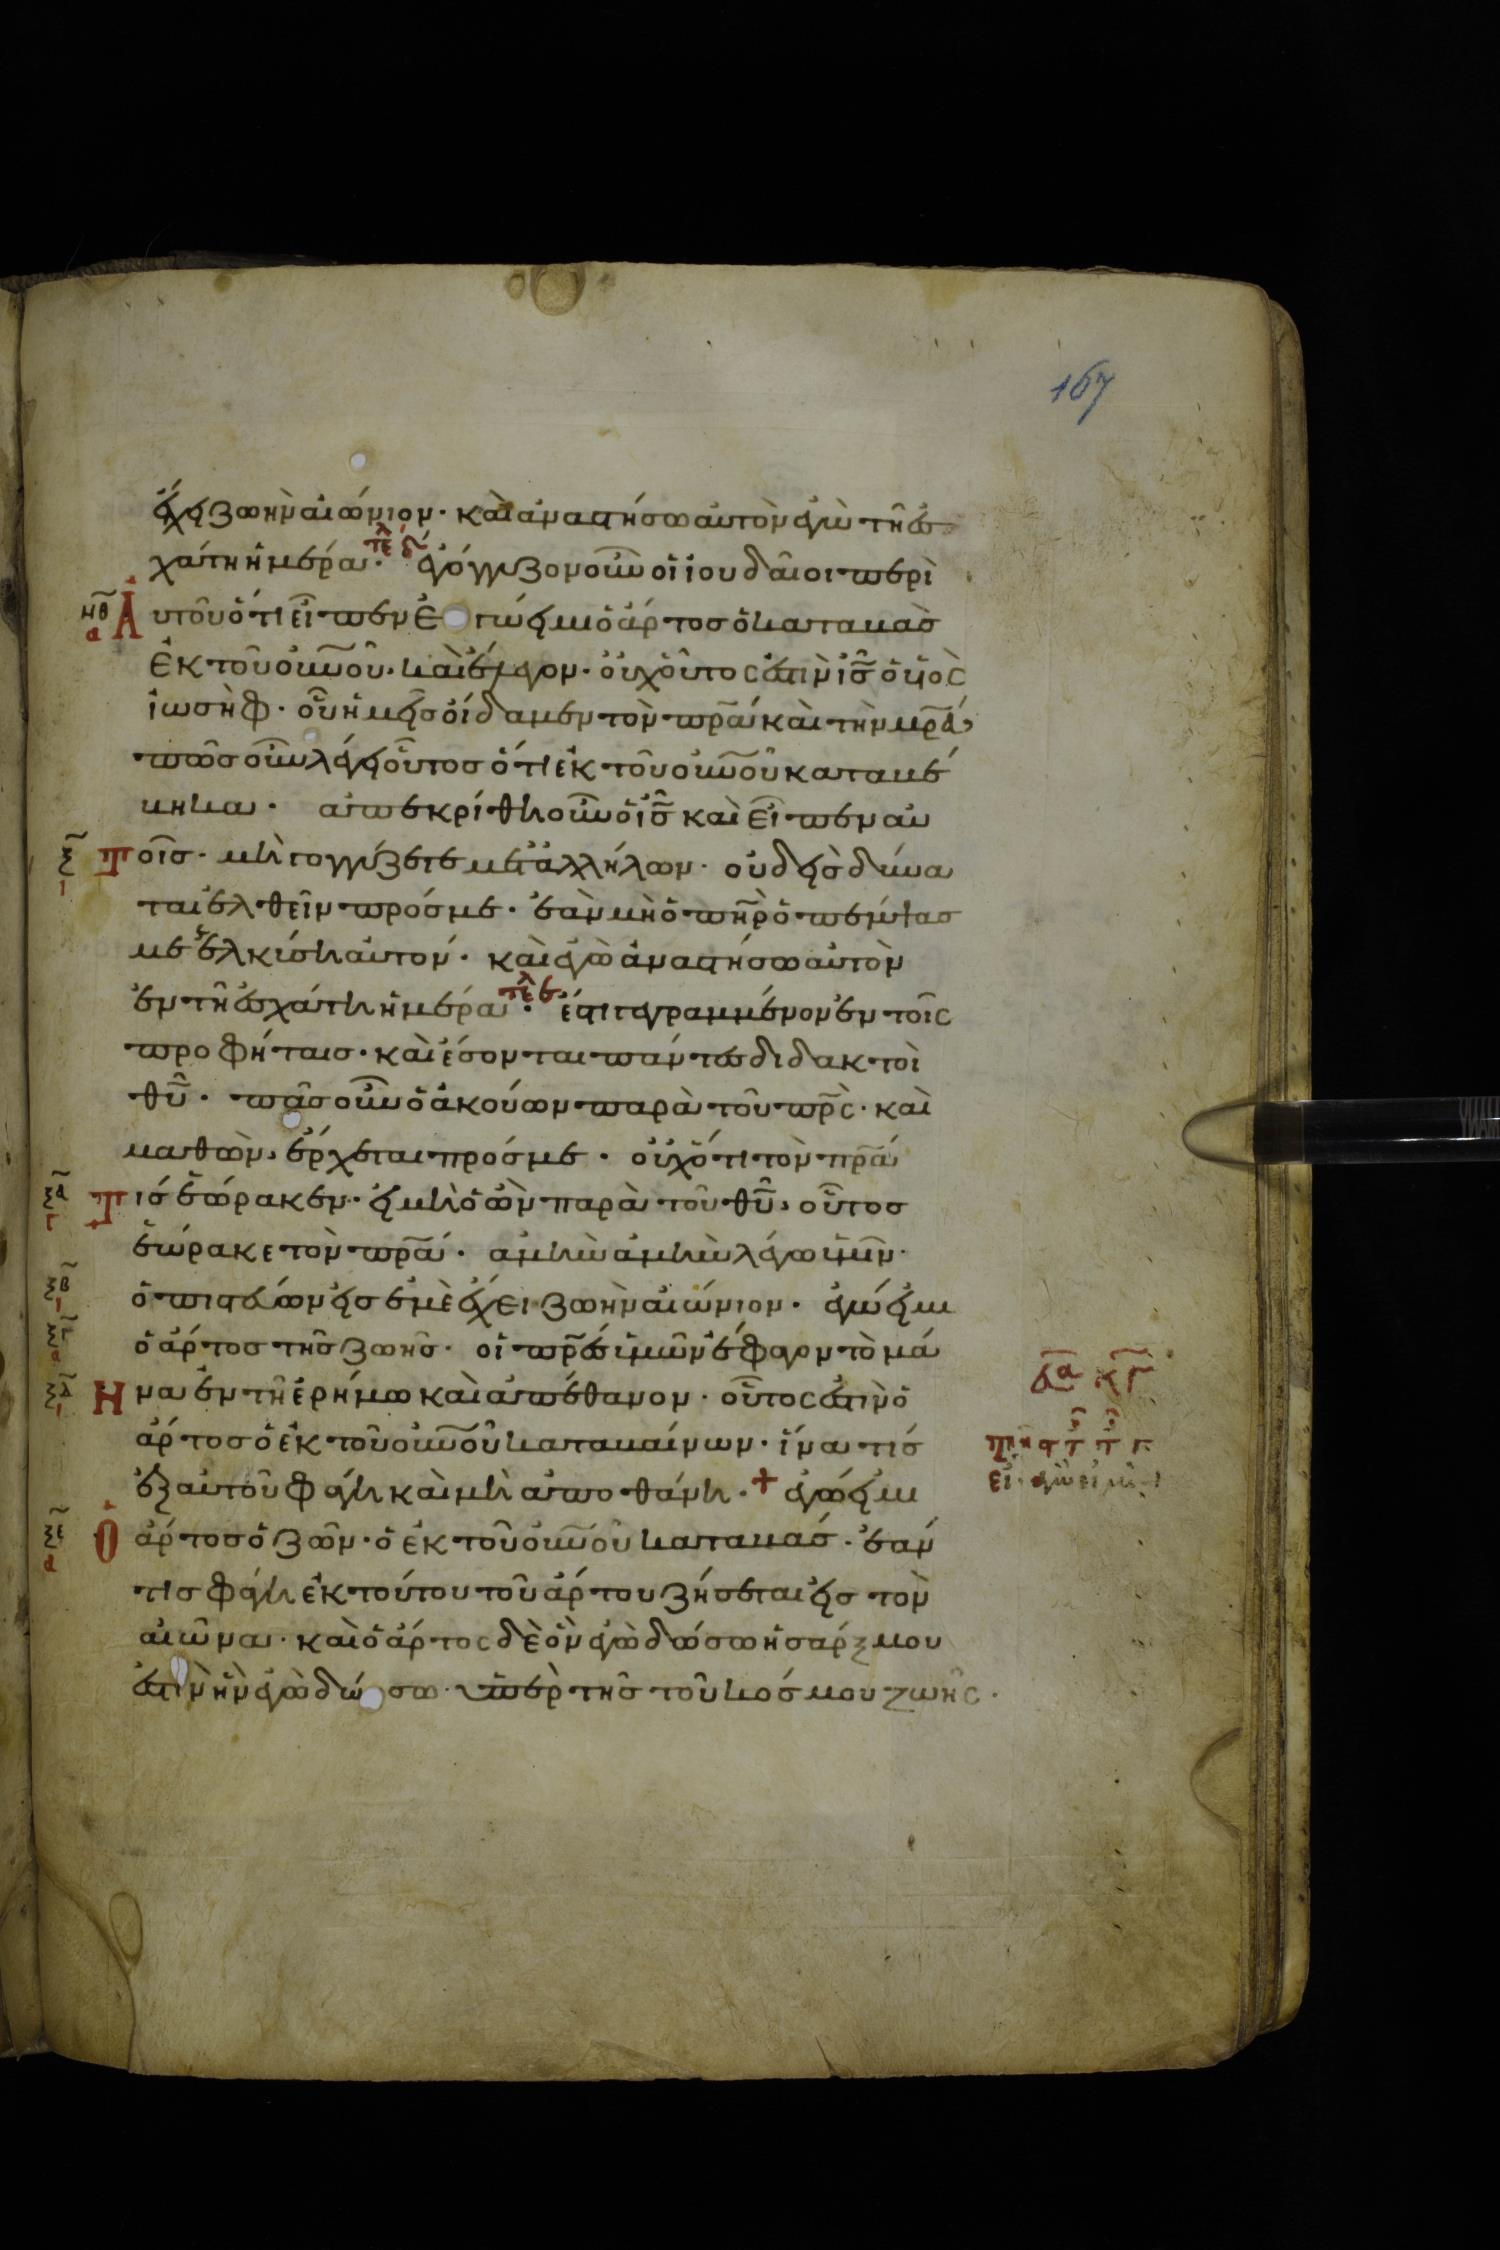 167
ἔχει ζωὴν αἰώνιον· καὶ ἀναστήσω αὐτὸν ἐγὼ τῆ ἐσ
χάτη ἡμέρα· ἐγόγγυζον οὖν οἱ ἰουδαῖοι περὶ
αὐτοῦ ὅτι εἶπεν ἐγώ εἰμι ὁ ἄρτος ὁ καταβὰς
ἐκ τοῦ οὐνοῦ· καὶ ἔλεγον· οὐχ οὗτος ἐστιν ἰς ὁ υἱὸς
ἰωσὴφ· οὗ ἡμεῖς οἴδαμεν τὸν πρα καὶ τὴν μρα·
πῶς οὖν λέγει οὗτος ὅτι ἐκ τοῦ οὐνοῦ καταβέ
βηκα· ἀπεκρίθη οὖν ὁ ἰς καὶ εἶπεν αὐ
τοῖς· μὴ γογγύζετε μετ ἀλλήλων· οὐδεὶς δύνα
ται ἐλθεῖν πρός με· ἐὰν μὴ ὁ πηρ ὁ πέμψας
με ἑλκύση αὐτόν· καὶ ἐγὼ ἀναστήσω αὐτὸν
ἐν τῆ ἐσχάτη ἡμέρα· ἔστι γεγραμμένον ἐν τοῖς
προφήταις· καὶ ἔσονται πάντες διδακτοὶ
θυ· πᾶς οὖν ὁ ἀκούων παρὰ τοῦ πρς· καὶ
μαθὼν, ἔρχεται πρός με· οὐχ ὅτι τὸν πρα
τις ἑώρακεν· εἰ μὴ ὁ ὢν παρὰ τοῦ θυ, οὗτος
ἑώρακε τὸν πρα· ἀμὴν ἀμὴν λέγω ὑμῖν·
ὁ πιστεύων εἰς ἐμὲ ἔχει ζωὴν αἰώνιον· ἐγώ εἰμι
ὁ ἄρτος τῆς ζωῆς· οἱ πρες ὑμῶν ἔφαγον τὸ μά
ννα ἐν τῆ ἐρήμω καὶ ἀπέθανον· οὗτος ἐστιν ὁ
ἄρτος ὁ ἐκ τοῦ οὐνοῦ καταβαίνων· ἵνα τις
ἐξ αὐτοῦ φάγη καὶ μὴ ἀποθάνη· + ἐγώ εἰμι
ὁ ἄρτος ὁ ζῶν· ὁ ἐκ τοῦ οὐνοῦ καταβάς· ἐάν
τις φάγη ἐκ τούτου τοῦ ἄρτου ζήσεται εἰς τὸν
αἰῶνα· καὶ ὁ ἄρτος δὲ ὃν ἐγὼ δώσω ἡ σάρξ μου
ἐστιν ἣν ἐγὼ δώσω· ὑπὲρ τῆς τοῦ κόσμου ζωῆς·
μθ
α
ξ
ι
ξα
γ
ξβ
ι
ξγ
α
ξδ
ι
ξε
α